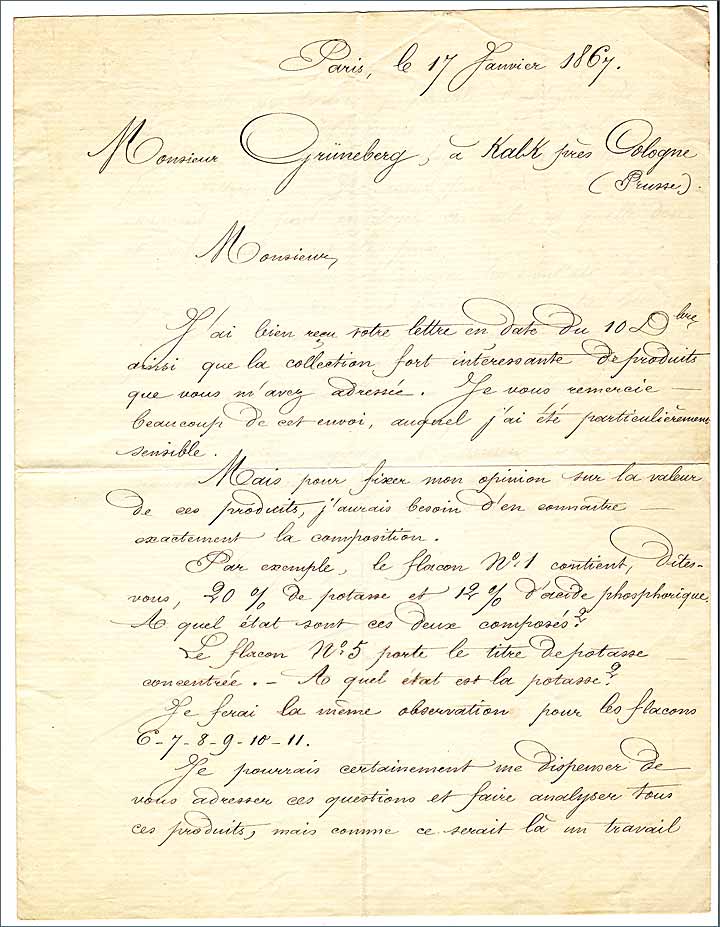 Paris, le 17 Janvier 1867.
Monsieur Grüneberg, à Kalk près Cologne
(Prusse).
Monsieur,
J'ai bien reçu votre lettre en date du 10 Xbre,
ainsi que la collection fort intéressante de produits
que vous m'avez adressée. Je vous remercie —
beaucoup de cet envoi, auquel j'ai été particulièrement
sensible.
Mais pour fixer mon opinion sur la valeur
de ces produits, j'aurais besoin d'en connaître —
exactement la composition.
Par exemple, le flacon No. 1 contient, dites-
vous, 20 % de potasse et 12 % d'acide phosphorique.
A quel état sont ces deux composés?
Le flacon No. 5 porte le titre de potasse —
concentrée. — A quel état est la potasse?
Je ferai la même observation pour les flacons
6-7-8-9-10-11.
Je pourrais certainement me dispenser de
vous adresser ces questions et faire analyser tous
ces produits, mais comme ce serait là un travail